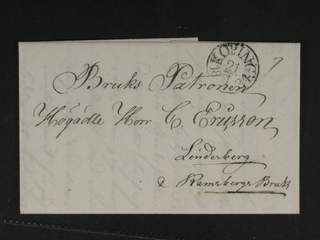 KÖPING
21
7
Bruks Patronen
Högädle Herr C. Ersson
Linderberg
& Ramsbergs Bruk